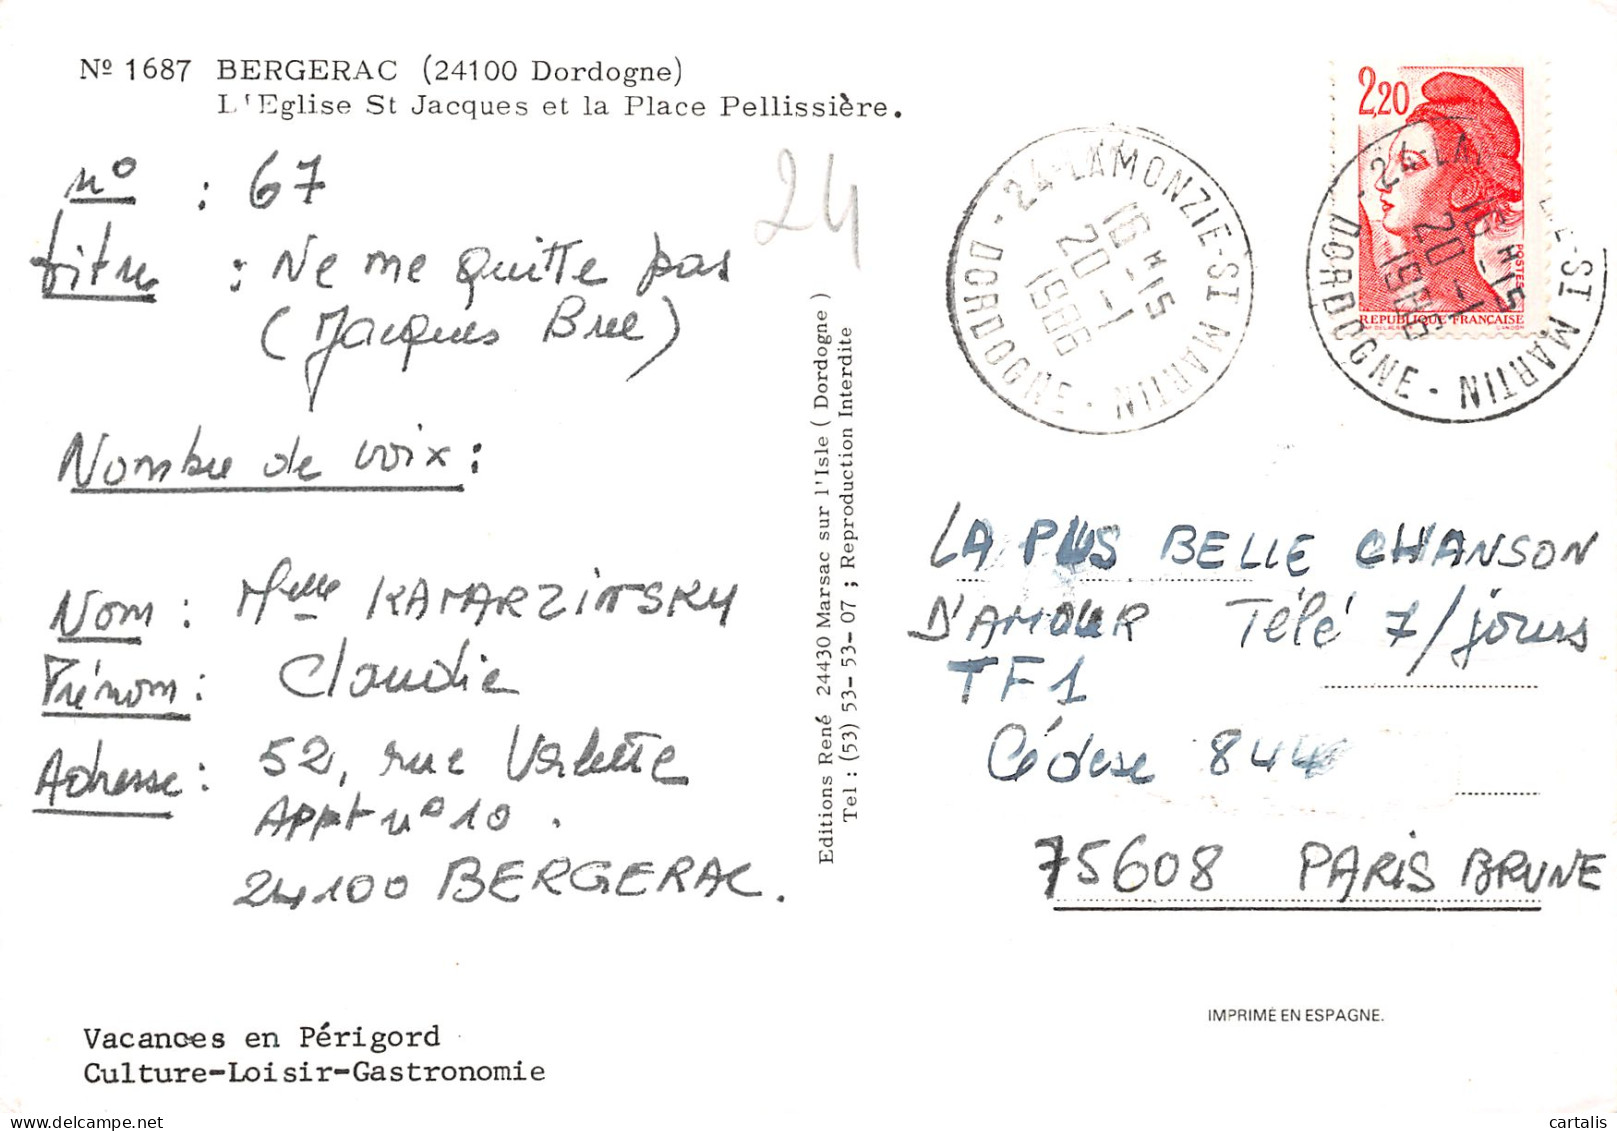 Nº 1687 BERGERAC (24100 Dordogne)
L'Eglise St Jacques et la Place Pellissière.
nº : 67
titre : Ne me quitte pas
(Jacques Brel)
Nombre de voix :
Nom : Melle KAMARZINSKY
Prénom : Claudie
Adresse : 52, rue Valette
APPt nº 10 .
24100 BERGERAC.
Vacances en Périgord
Culture-Loisir-Gastronomie
24
Editions René 24430 Marsac sur l'Isle ( Dordogne )
Tel : (53) 53-53-07 ; Reproduction Interdite
24-LAMONZIE-ST MARTIN - DORDOGNE -
16H15
20 -1
1986
2,20
POSTES
REPUBLIQUE FRANÇAISE
GANDON
24-LA E-ST MARTIN - DORDOGNE -
16H15
20 -1
1986
LA PLUS BELLE CHANSON
D'AMOUR Télé 7/jours
TF1
Cédex 844
75608 PARIS BRUNE
IMPRIMÉ EN ESPAGNE.
cartalis